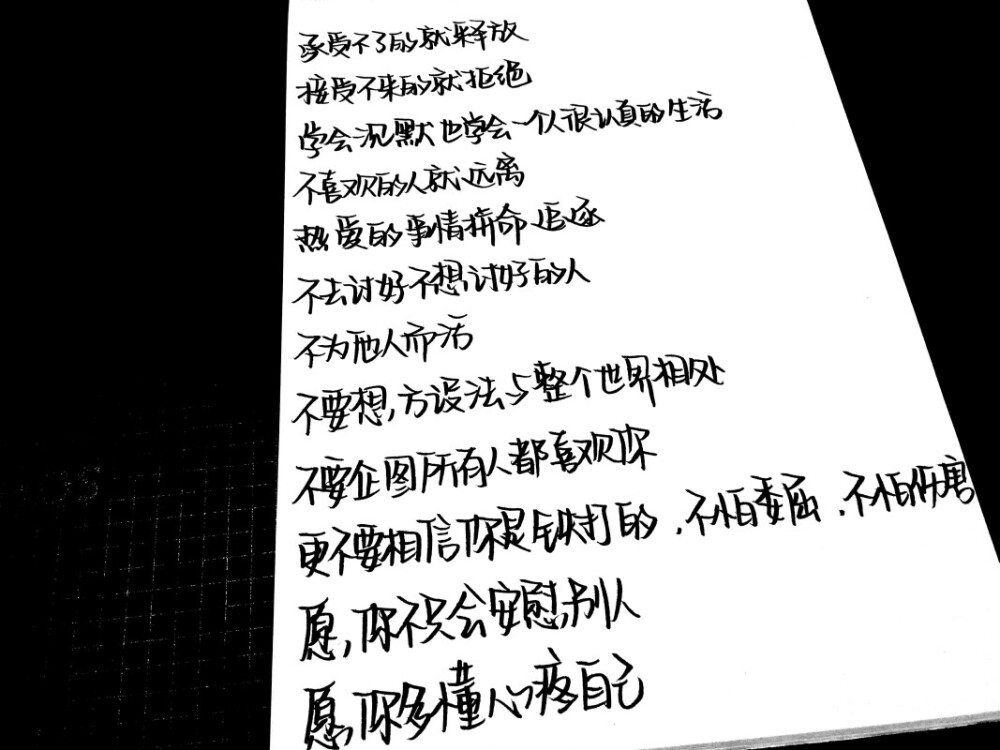 承受不了的就释放
接受不来的就拒绝
学会沉默也学会一个人很认真的生活
不喜欢的人就远离
热爱的事情拼命追逐
不去讨好不想讨好的人
不为他人而活
不要想方设法与整个世界相处
不要企图所有人都喜欢你
更不要相信你是铁打的,不怕委屈,不怕伤害
愿你不只会安慰别人
愿你多懂心疼自己